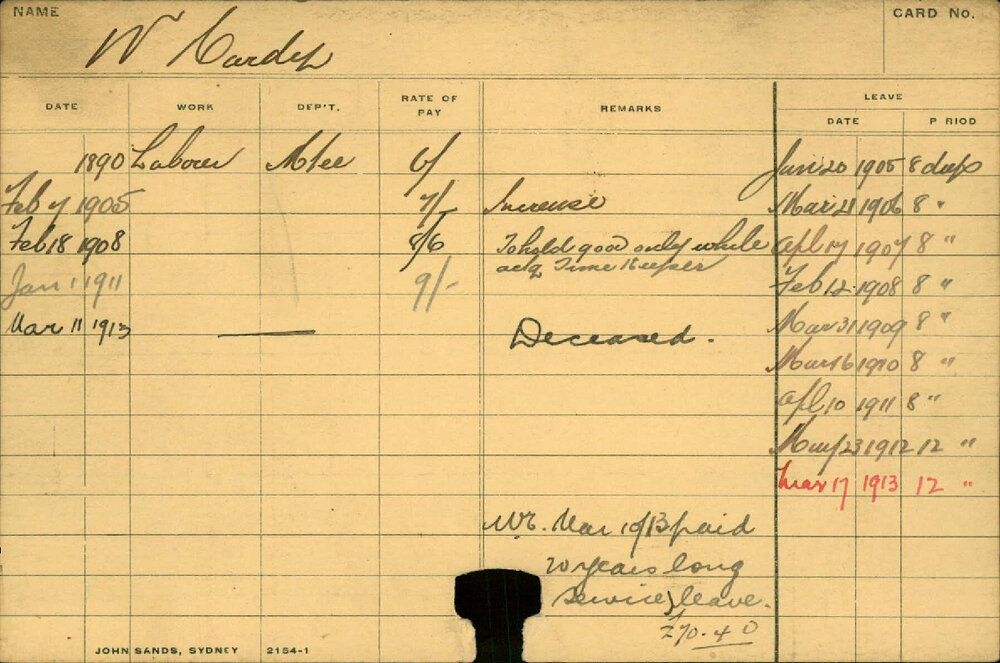 NAME
CARD No.
W
DATE WORK DEP'T. RATE OF PAY REMARKS LEAVE
DATE P RIOD
1890 Laborer 6/ Jan 20 1905 8 days
Feb 7 1905 7/- Increase Mar 21 1906 8 "
Feb 18 1908 8/6 To hold good only while Apl 17 1907 8 "
actg Time Keeper
Jan 1 1911 9/- Feb 12 1908 8 "
Mar 11 1913 — Deceased. Mar 31 1909 8 "
Mar 16 1910 8 "
Apl 10 1911 8 "
May 23 1912 12 "
Mar 17 1913 12 "
Mar 13 paid
20 years long
service leave.
£70-4-0
JOHN SANDS, SYDNEY 2154-1